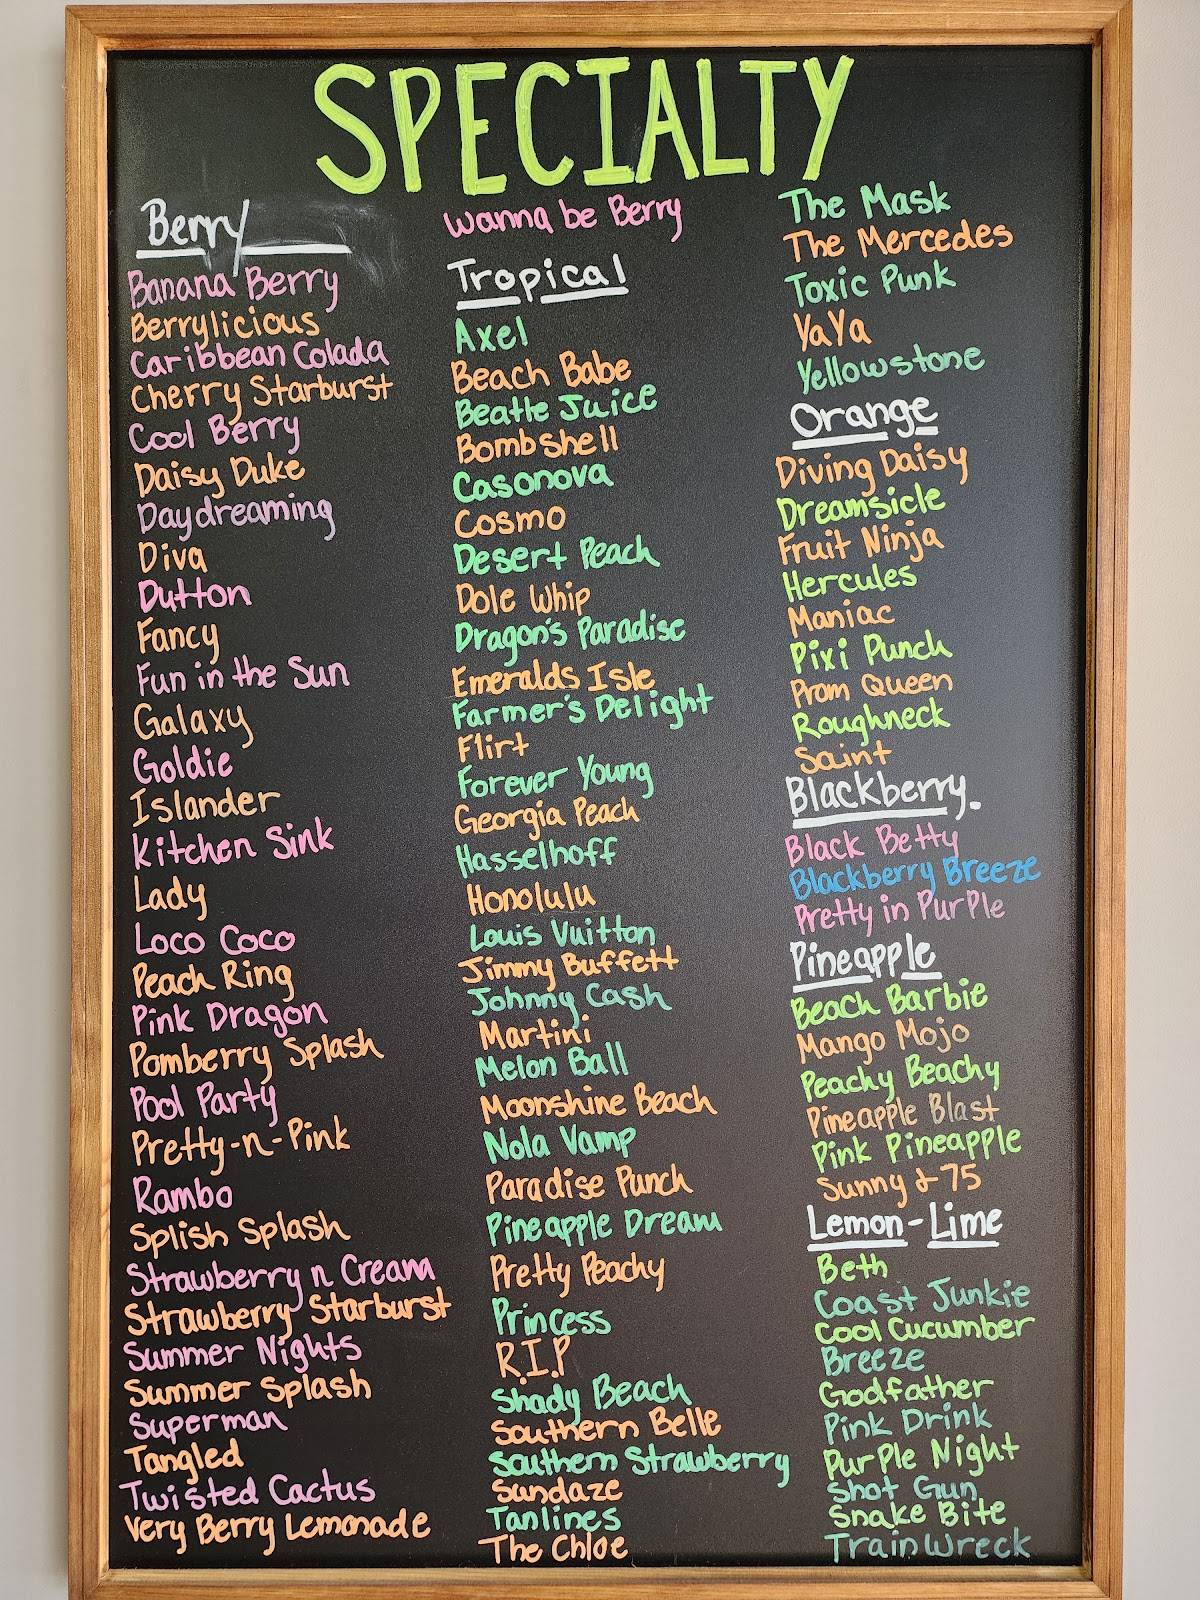 SPECIALTY
Berry
Banana Berry
Berrylicious
Caribbean Colada
Cherry Starburst
Cool Berry
Daisy Duke
Daydreaming
Diva
Dutton
Fancy
Fun in the Sun
Galaxy
Goldie
Islander
Kitchen Sink
Lady
Loco Coco
Peach Ring
Pink Dragon
Pomberry Splash
Pool Party
Pretty-n-Pink
Rambo
Splish Splash
Strawberry n Cream
Strawberry Starburst
Summer Nights
Summer Splash
Superman
Tangled
Twisted Cactus
Very Berry Lemonade
Wanna be Berry
Tropical
Axel
Beach Babe
Beatle Juice
Bombshell
Casonova
Cosmo
Desert Peach
Dole Whip
Dragon's Paradise
Emeralds Isle
Farmer's Delight
Flirt
Forever Young
Georgia Peach
Hasselhoff
Honolulu
Louis Vuitton
Jimmy Buffett
Johnny Cash
Martini
Melon Ball
Moonshine Beach
Nola Vamp
Paradise Punch
Pineapple Dream
Pretty Peachy
Princess
R.I.P
Shady Beach
Southern Belle
Southern Strawberry
Sundaze
Tanlines
The Chloe
The Mask
The Mercedes
Toxic Punk
YaYa
Yellowstone
Orange
Diving Daisy
Dreamsicle
Fruit Ninja
Hercules
Maniac
Pixi Punch
Prom Queen
Roughneck
Saint
Blackberry.
Black Betty
Blackberry Breeze
Pretty in Purple
Pineapple
Beach Barbie
Mango Mojo
Peachy Beachy
Pineapple Blast
Pink Pineapple
Sunny & 75
Lemon-Lime
Beth
Coast Junkie
Cool Cucumber
Breeze
Godfather
Pink Drink
Purple Night
Shot Gun
Snake Bite
Train Wreck